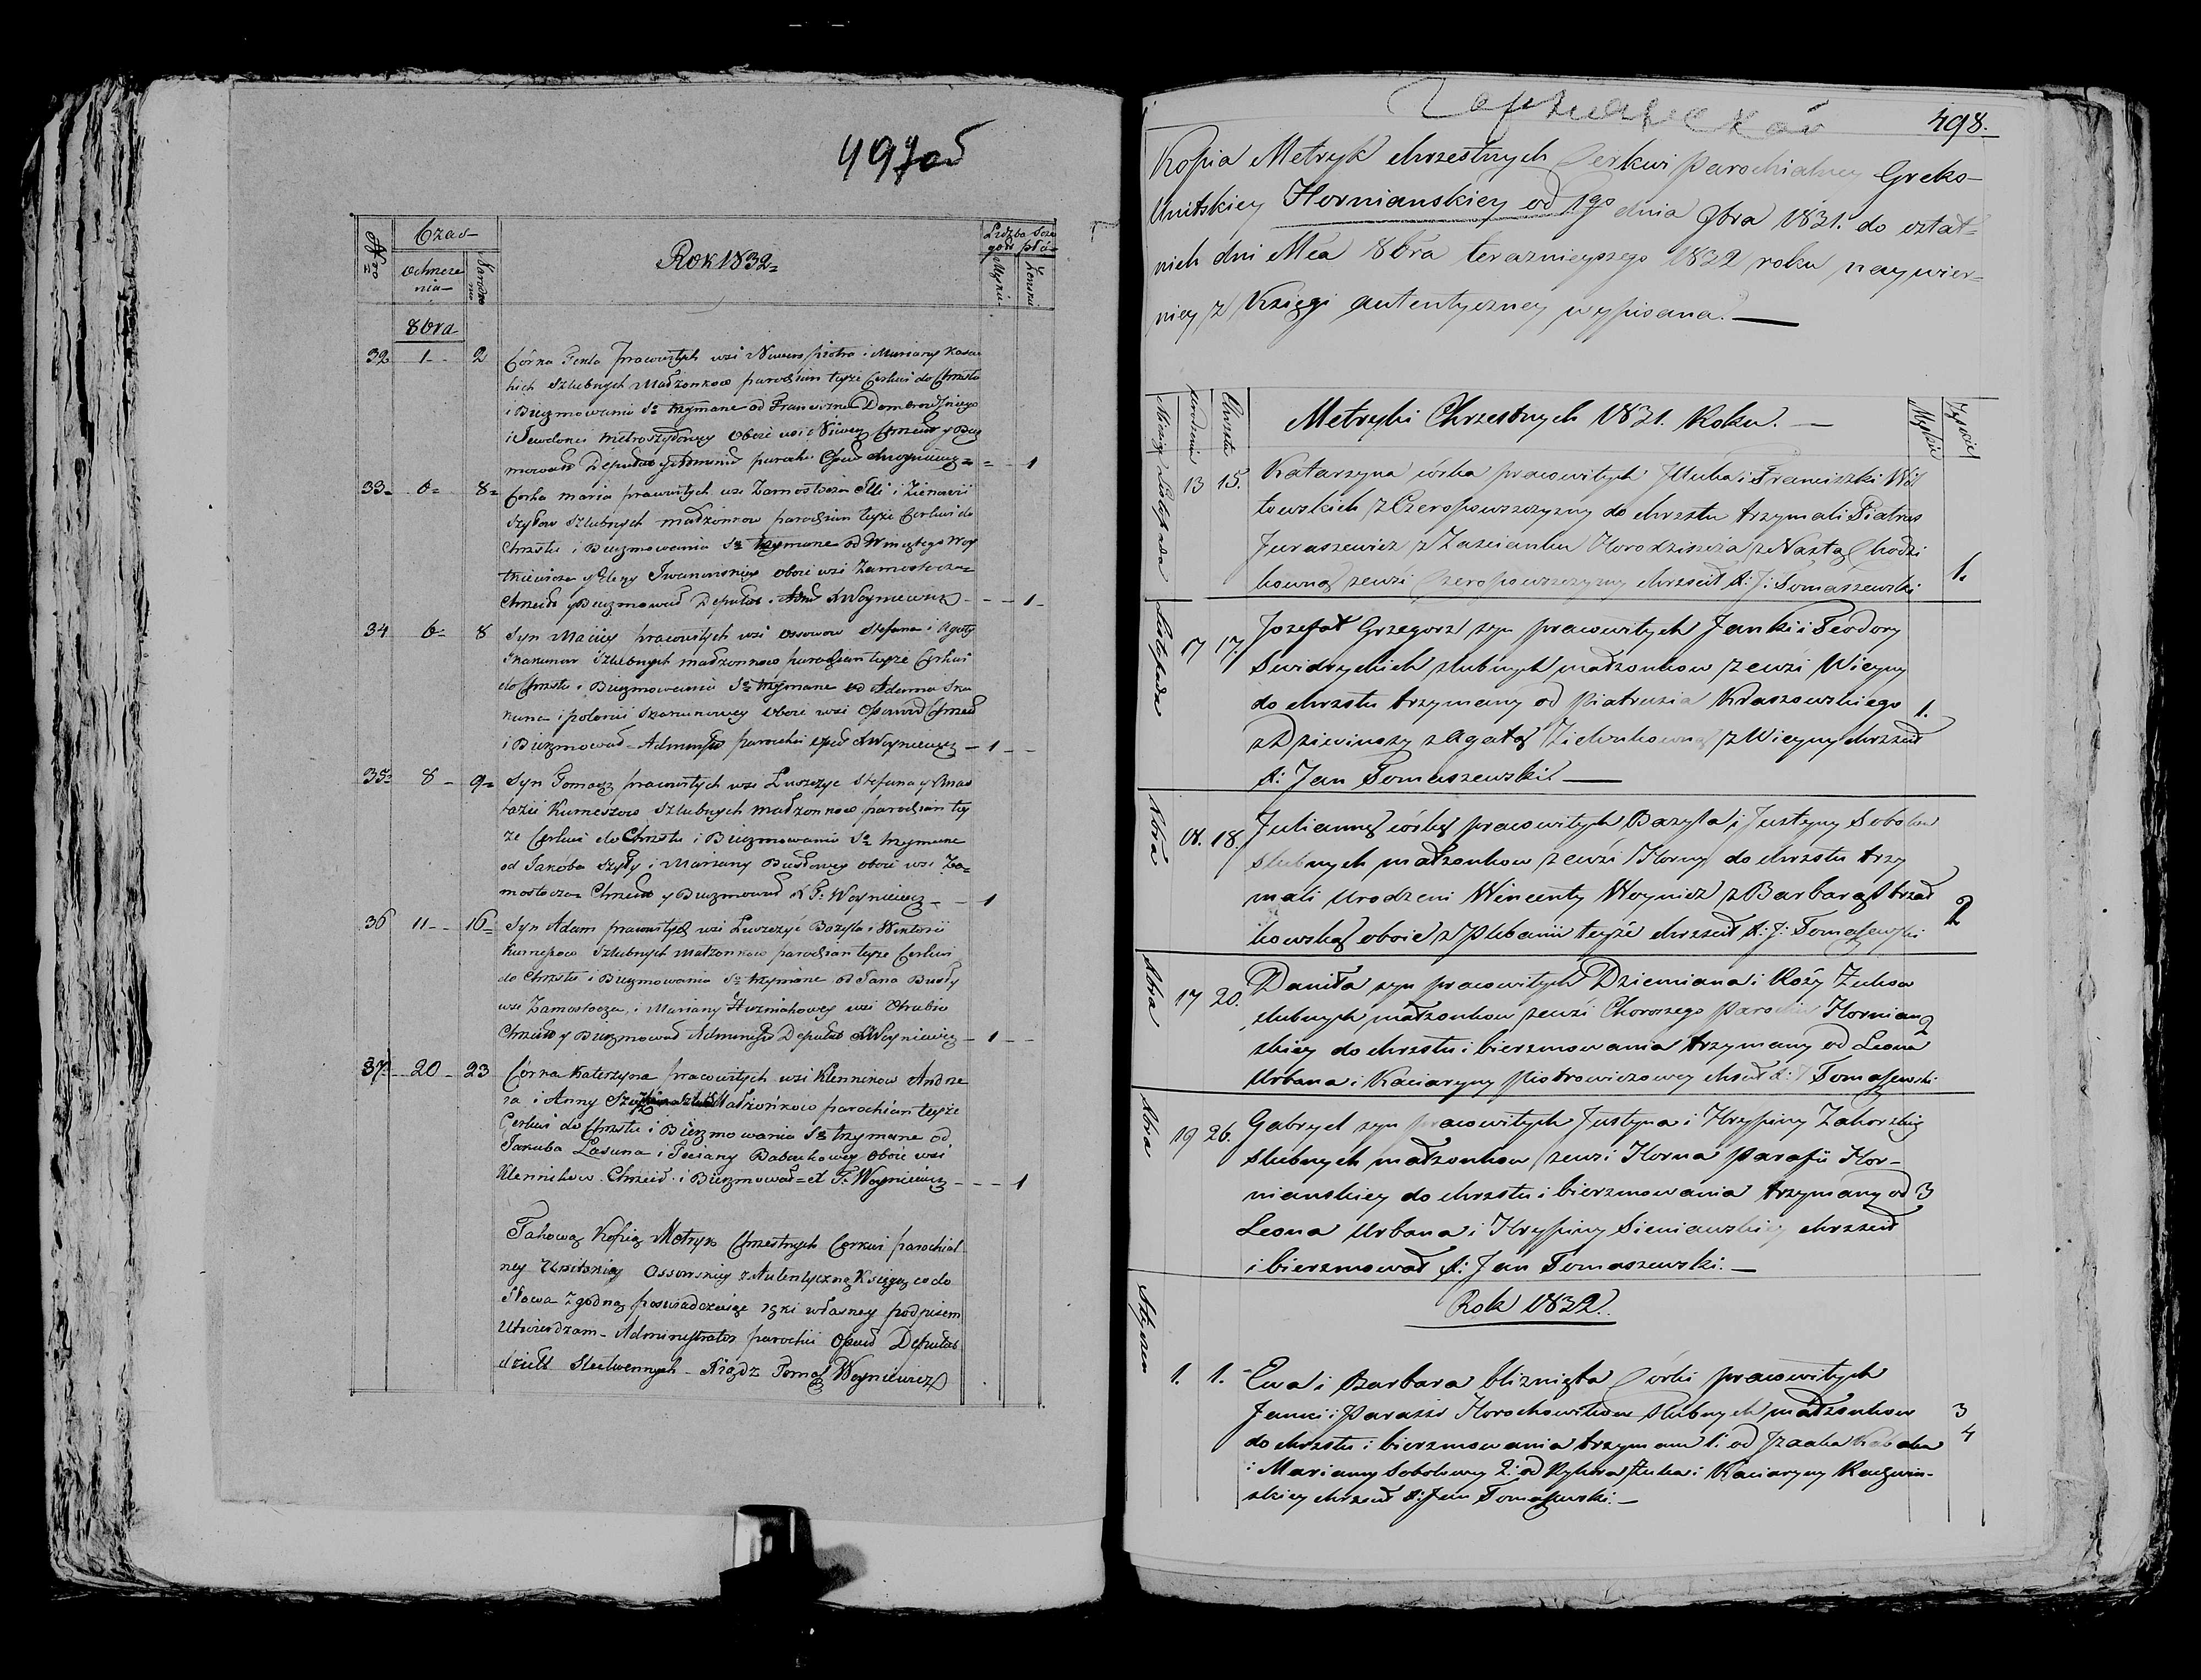 497об
Nro
Czas
Rok 1832=
Liczba Szcze
gół. płci
ochrzcze
nia
Narodze
nia
Męzka
Żenska
8bra
32 1 - - 2 Córka Tekla pracowitych wsi Piotra i Maryany
kich szlubnych Małżonkow parochian teyże Cerkwi do Chrztu
i Bierzmowania Sº trzymane od Franciszka
i oboie wsi Chrzcił y Bierz
mował Deputat parochii
33= 6= 8= Corka maria pracowitych wsi Zamostocza Illi i Zienowii
Szyłow szlubnych małżonkow parochian teyże Cerkwi do
Chrztu i Bierzmowania Sº trzymane od Wincętego Woy
tkiewicza y Eleny oboie wsi Zamostocza=
Chrzcił y Bierzmował Deputat Woyniewicz - - 1 -
34 6= 8 Syn Maciey pracowitych wsi Ossowow Stefana i Agaty
Skakunow szlubnych małżonkow parochian teyże Cerkwi
do Chrztu i Bierzmowania Sº trzymane od Adama Ska
kuna i polonii Skakunowey oboie wsi Chrzcił
i Bierzmował Administr parochii Woyniewicz - 1 - -
35= 8 - 9= Syn Tomasz pracowitych wsi Luszczyc Stefana y Anas
tazii Kumeszow szlubnych małżonkow parochian tey
że Cerkwi do Chrztu i Bierzmowania Sº trzymane
od Jakóba Szyły i Maryany Busłowey oboie wsi Za=
mostocza= Chrzcił y Bierzmował X T: Woyniewicz - - 1
36 11 - - 16= Syn Adam pracowitych wsi Luszczyć Bazyla i Wiktorii
Kumeszow szlubnych małżonkow parochian teyże Cerkwi
do Chrztu i Bierzmowania Sº trzymane od Jana Busły
wsi Zamostocza, i Maryany wsi
Chrzcił y Bierzmował Administr Deputat X Woyniewicz - 1 - -
37= 20 - 23 Córka Katerzyna pracowitych wsi Klennikow Andrze
ia i Anny Małżońkow parochian teyże
Cerkwi do Chrztu i Bierzmowania Sº trzymane od
Jakuba Lasuna i Taciany Babenkowey oboie wsi
Klennikow. Chrzcił i Bierzmował= X T: Woyniewicz - - - 1
Takową Kopię Metryk Chrzestnych Cerkwi parochial
ney Unitskiey Ossowskiey z Autentyczną Księgą co do
Słowa zgodną poswiadczaiąc ręki własney podpisem
Utwierdzam - Administrator parochii Deputat
dzieł Sledtwennych - Xiądz Tomasz Woyniewicz
498.
Kopia Metryk chrzestnych Cerkwi Parochialney Greko-
Unitskiey Hornianskiey od 1go dnia 9bra 1831. do ostat=
nich dni Mca 8bra teraznieyszego 1832 roku naywier=
niey z Księgi autentyczney wypisana. —
Miesiąc
urodzenia
Chrztu
Metryki Chrzestnych 1831. Roku. —
Męzkich
Żęnskich
Listopada 13 15. Katarzyna córka pracowitych Jluka i Franciszki Wit
kowskich z Czeropowszczyzny do chrztu trzymali Piatrus
Juraszewicz z Zascianku Horodziszcza z Nastą Chodzi
kowną zewsi Czeropowszczyzny chrzcił X: J: Tomaszewski 1.
Listopada 17 17. Jozefat Grzegorz syn pracowitych Janki i Teodory
Swidryckich slubnych małzonkow zewsi Wicyny
do chrztu trzymany od Piatrusia Kraszewskiego 1.
z Dziewinozy z Agatą Zichnkowną z Wicyny chrzcił
X: Jan Tomaszewski —
9bra 08. 18. Juliannę córkę pracowitych Bazyla i Justyny Sobolow
slubnych małzonkow zewsi Horny do chrztu trzy
mali urodzeni Wincenty Woynicz z Barbarą
kowską oboie z Plebanii teyże chrzcił X: J: Tomaszewski 2
9bra 17 20. Daniła syn pracowitych Dziemiana i Rozy Żukow
slubnych małzonkow zewsi Choroszego Parochii Hornian
skiey do chrztu i bierzmowania trzymany od Leona 2
Urbana i Kaciaryny Piotrowiczowey chrzcił X: J Tomaszewski
9bra 19 26. Gabryel syn pracowitych Justyna i Hryppiny Zahorskich
slubnych małzonkow zewsi Horna Parafii Hor-
nianskiey do chrztu i bierzmowania trzymany od 3
Leona Urbana i Hryppiny Sieniawskiey chrzcił
i bierzmował X: Jan Tomaszewski. —
Rok 1832.
Styczen 1. 1. Ewa i Barbara bliznięta Córki pracowitych
Jamci i Paraski Horochowikow slubnych małzonkow 3
do chrztu i bierzmowania trzyman 1: od Izaaka 4
i Marianny Sobolowey 2: od Żuka i Kaciaryny
skiey chrzcił X: Jan Tomaszewski. —